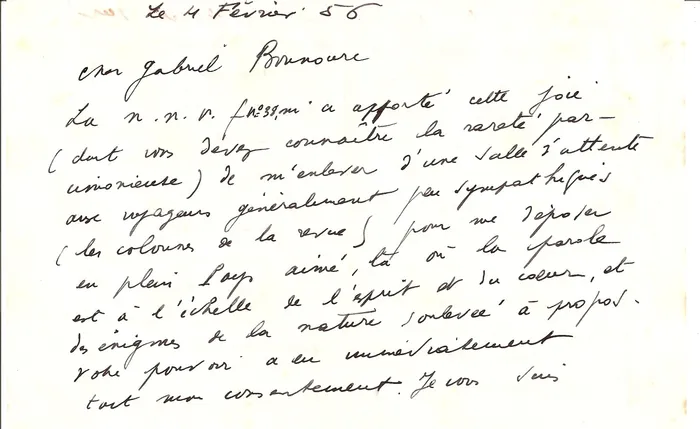 Le 4 Février 56
cher Gabriel Bounoure
La n. n. r. (n°38) m'a apporté cette joie
(dont vous devez connaître la rareté par-
cimonieuse) de m'enlever d'une salle d'attente
aux voyageurs généralement peu sympathiques
(les colonnes de la revue) pour me déposer
en plein Pays aimé, là où la parole
est à l'échelle de l'esprit et du cœur, et
des énigmes de la nature soulevée à propos.
Votre pouvoir a eu immédiatement
tout mon consentement. Je vous suis